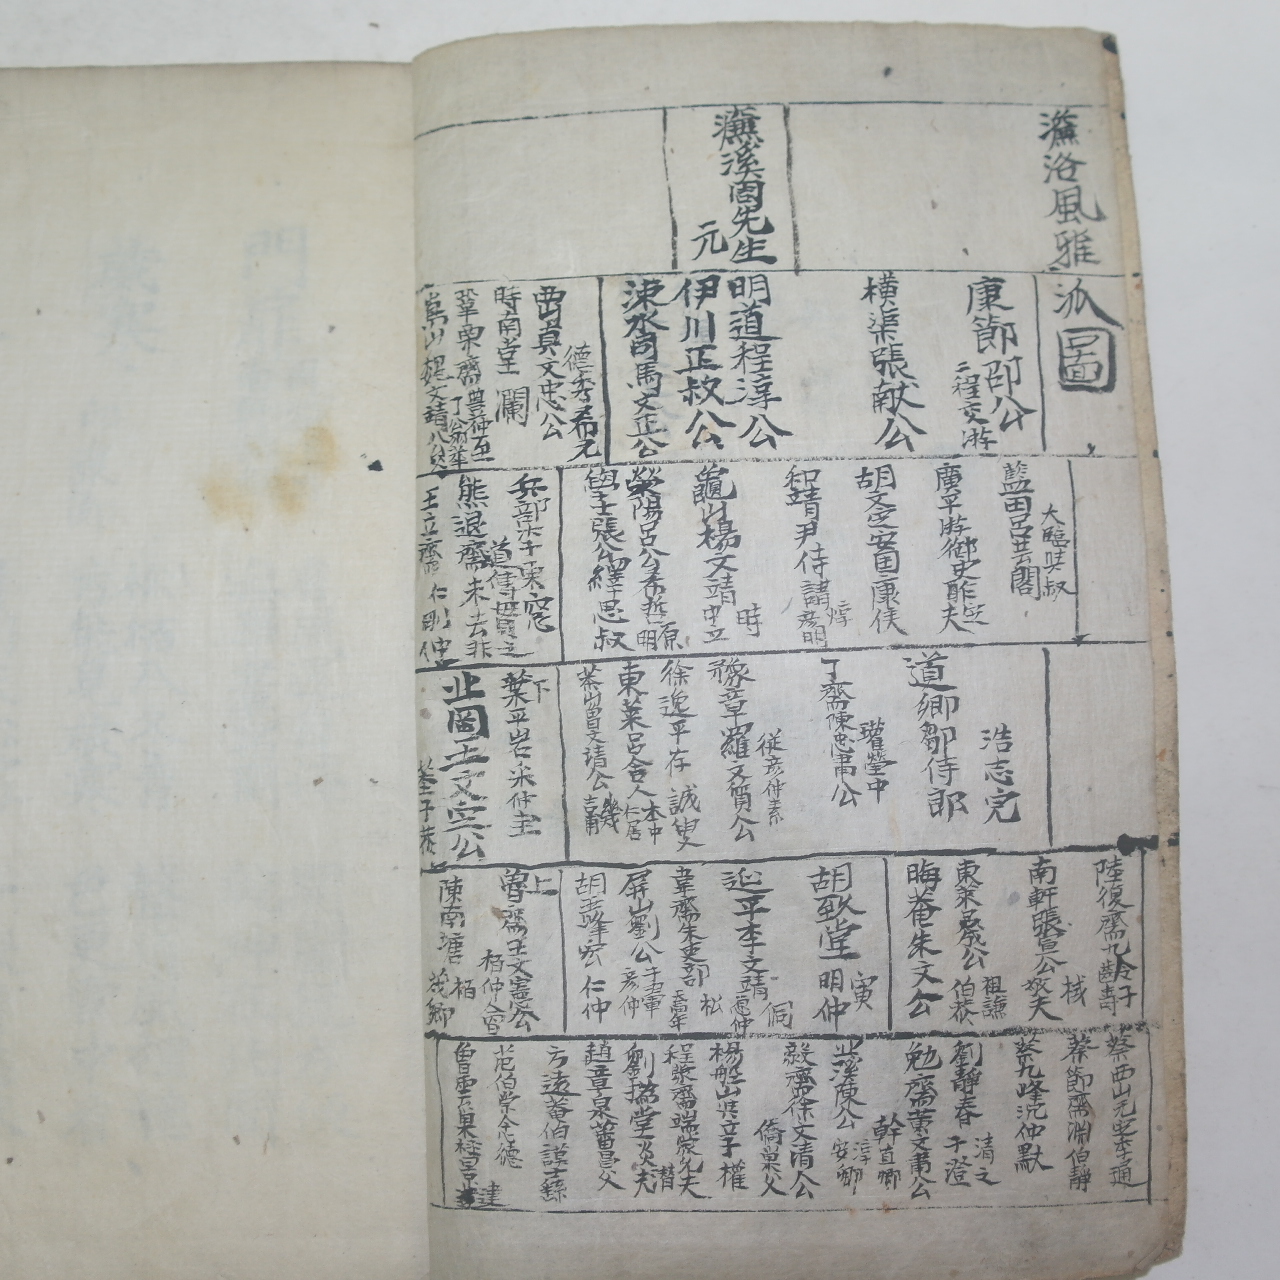 濂洛風雅
派圖
濂溪周先生
元
康節邵公
二程交游
橫渠張献公
明道程淳公
伊川正叔公
涑水司馬文正公
西真文忠公
德秀希元
時南堂
瀾
鞏栗齋
豊仲至
藍田呂芸閣
大臨與叔
廣平游御史酢
夫
胡文定安国康侯
和靖尹侍講
焞彦明
龜山楊文靖
時中立
滎陽呂公希哲
原明
學士張公繹思叔
熊退齋
末去非
王立齋
仁
剛仲
道鄉鄒侍郎
浩志完
了齋陳忠肅公
瓘瑩中
豫章羅文質公
從彦仲素
徐逸平存誠叟
東萊呂舍人
本中
仁居
茶山曾文清公
幾
吉甫
下
葉平岩采仲圭
陸復齋九齡
子壽
南軒張宣公
栻
敬夫
東萊呂成公
祖謙
伯恭
晦菴朱文公
胡致堂
寅
明仲
延平李文靖
侗
愿仲
韋齋朱吏部
松
喬年
屏山劉公子翬
彦仲
胡五峰宏仁仲
上
魯齋王文憲公
柏仲會
陳南塘
柏
茂卿
蔡西山元定季通
蔡節齋淵伯靜
蔡九峰沉仲默
劉靜春
清之
子澄
勉齋黃文肅公
幹直卿
北溪陳公
淳
安卿
毅齋徐文清公
僑
巢父
楊船山與立子權
程蒙齋端蒙
劉撝堂炎
潜夫
趙章泉蕃昌父
方遠菴伯謨士繇
范伯崇念德